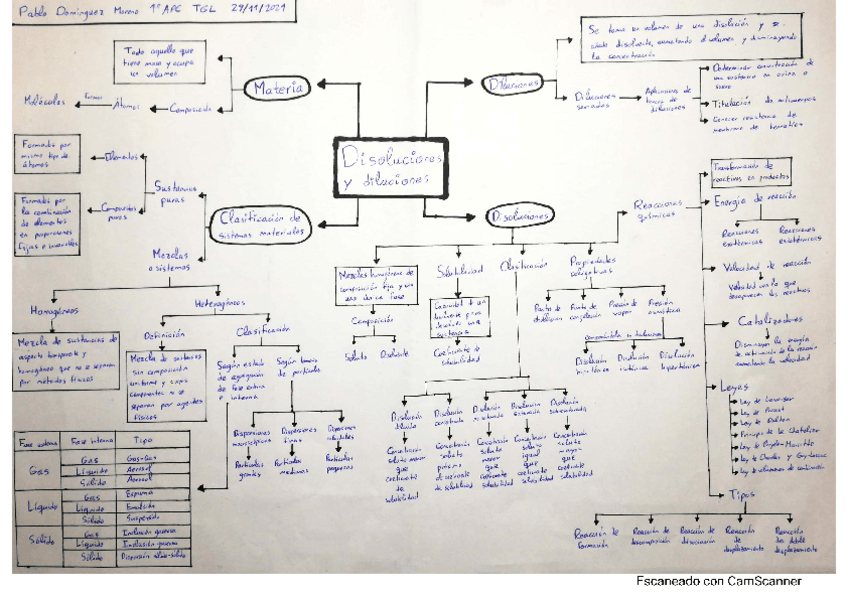 Pablo Dominguez Moreno 1º APC TGL 29/11/2021
Disoluciones
y diluciones
Materia
Todo aquello que
tiene masa y ocupa
un volumen
Composición
Átomos
Forman
Moléculas
Clasificación de
sistemas materiales
Sustancias
puras
Elementos
Formados por
mismo tipo de
átomos
Compuestos
puros
Formados por
la combinación
de elementos
en proporciones
fijas e invariables
Mezclas
o sistemas
Homogéneos
Mezcla de sustancias de
aspecto transparente y
homogéneo que no se separan
por métodos físicos
Heterogéneos
Definición
Mezcla de sustancias
sin composición
uniforme y cuyos
componentes se
separan por agentes
físicos
Clasificación
Según estado
de agregación
de fase externa
e interna
Según tamaño
de partícula
Dispersiones
macroscópicas
Partículas
grandes
Dispersiones
finas
Partículas
medianas
Dispersiones
coloidales
Partículas
pequeñas
Fase externa Fase interna Tipo
Gas
Gas Gas-Gas
Líquido Aerosol
Sólido Aerosol
Líquido
Gas Espuma
Líquido Emulsión
Sólido Suspensión
Sólido
Gas Inclusión gaseosa
Líquido
Sólido Dispersión sólido-sólido
Diluciones
Se toma un volumen de una disolución y se
añade disolvente, aumentando el volumen y disminuyendo
la concentración
Diluciones
seriadas
Aplicaciones de
banco de
diluciones
Determinar concentración de
una sustancia en orina o
suero
Titulación de anticuerpos
Conocer resistencia de
membrana de hematíes
Disoluciones
Mezclas homogéneas de
composición fija y en
una única fase
Composición
Soluto Disolvente
Solubilidad
Coeficiente de
solubilidad
Clasificación
Disolución
diluida
Concentración
soluto menor
que
coeficiente
de
solubilidad
Disolución
concentrada
Concentración
soluto
próximo
al coeficiente
de solubilidad
Disolución
Concentración
soluto
que
coeficiente
solubilidad
Disolución
saturada
Concentración
soluto
igual
que
coeficiente
solubilidad
Disolución
sobresaturada
Concentración
soluto
mayor
que
coeficiente
solubilidad
Propiedades
coligativas
Punto de
ebullición
Punto de
congelación
Presión de
vapor
Presión
osmótica
Disolución
hipotónica
Disolución
isotónica
Disolución
hipertónica
Reacciones
químicas
Transformación de
reactivos en productos
Energía de reacción
Reacciones
exotérmicas
Reacciones
endotérmicas
Velocidad de reacción
Velocidad con la que
desaparecen los reactivos
Catalizadores
Disminuyen la energía
de activación de la reacción
aumentando la velocidad
Leyes
Ley de Lavoisier
Ley de Proust
Ley de Dalton
Principio de Le Chatelier
Ley de Boyle-Mariotte
Ley de Charles y Gay-Lussac
Ley de volúmenes de combinación
Tipos
Reacción de
formación
Reacción de
descomposición
Reacción de
disociación
Reacción de
desplazamiento
Reacción
de doble
desplazamiento
Escaneado con CamScanner